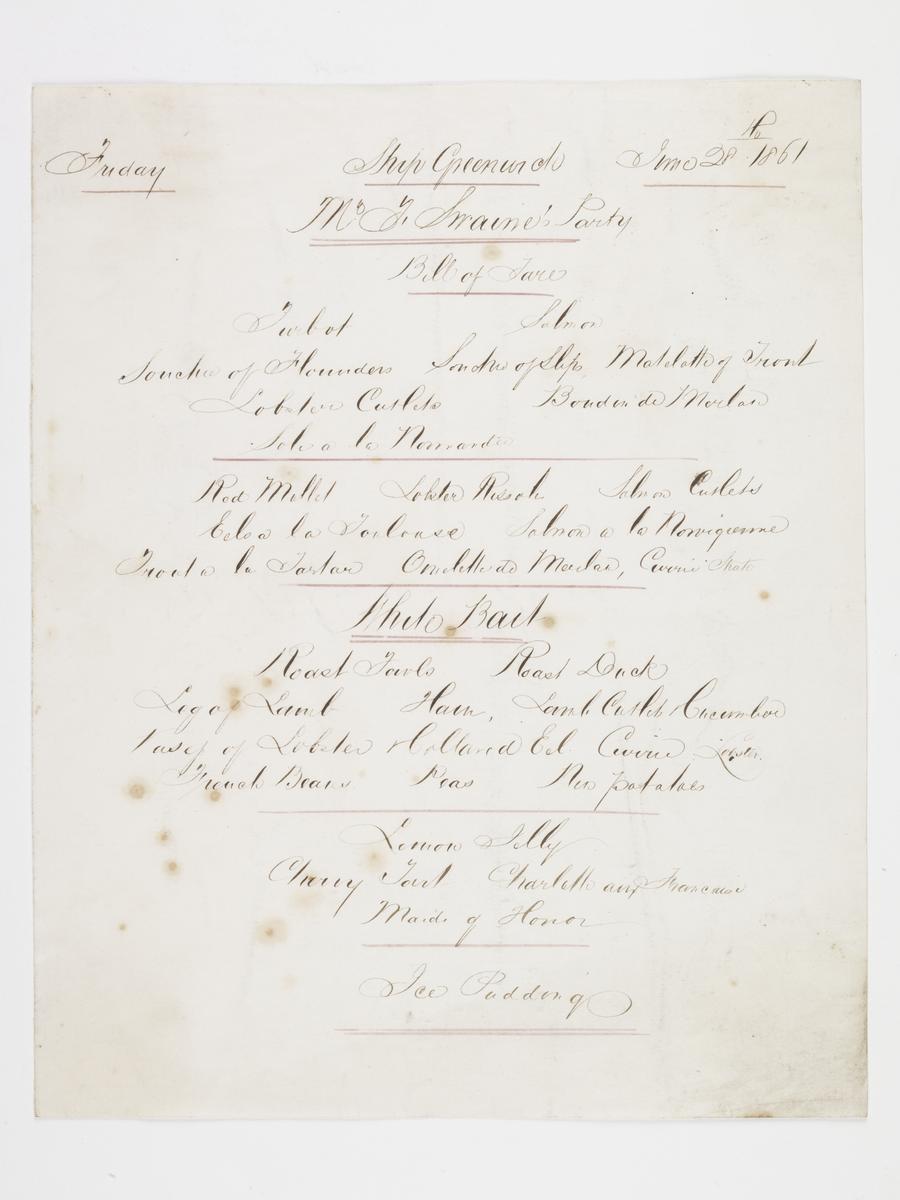 Friday Ship Greenwich June 28th 1861
Mr F. Swaine's Party
Bill of Fare
Turbot Salmon
Souche of Flounders Souche of Slip Matelotte of Trout
Lobster Cutlets Boudin de Merlan
Sole a la Normandie
Red Mullet Lobster Rissole Salmon Cutlets
Eels a la Toulouse Salmon a la Norvigienne
Trout a la Tartar Omelette de Merlan, Currie
White Bait
Roast Fowls Roast Duck
Leg of Lamb Ham, Lamb Cutlets Cucumber
of Lobster Collared Eel Currie Lobster.
French Beans Peas New potatoes
Lemon Jelly
Cherry Tart Charlotte aux Francaise
Maids of Honor
Ice Pudding